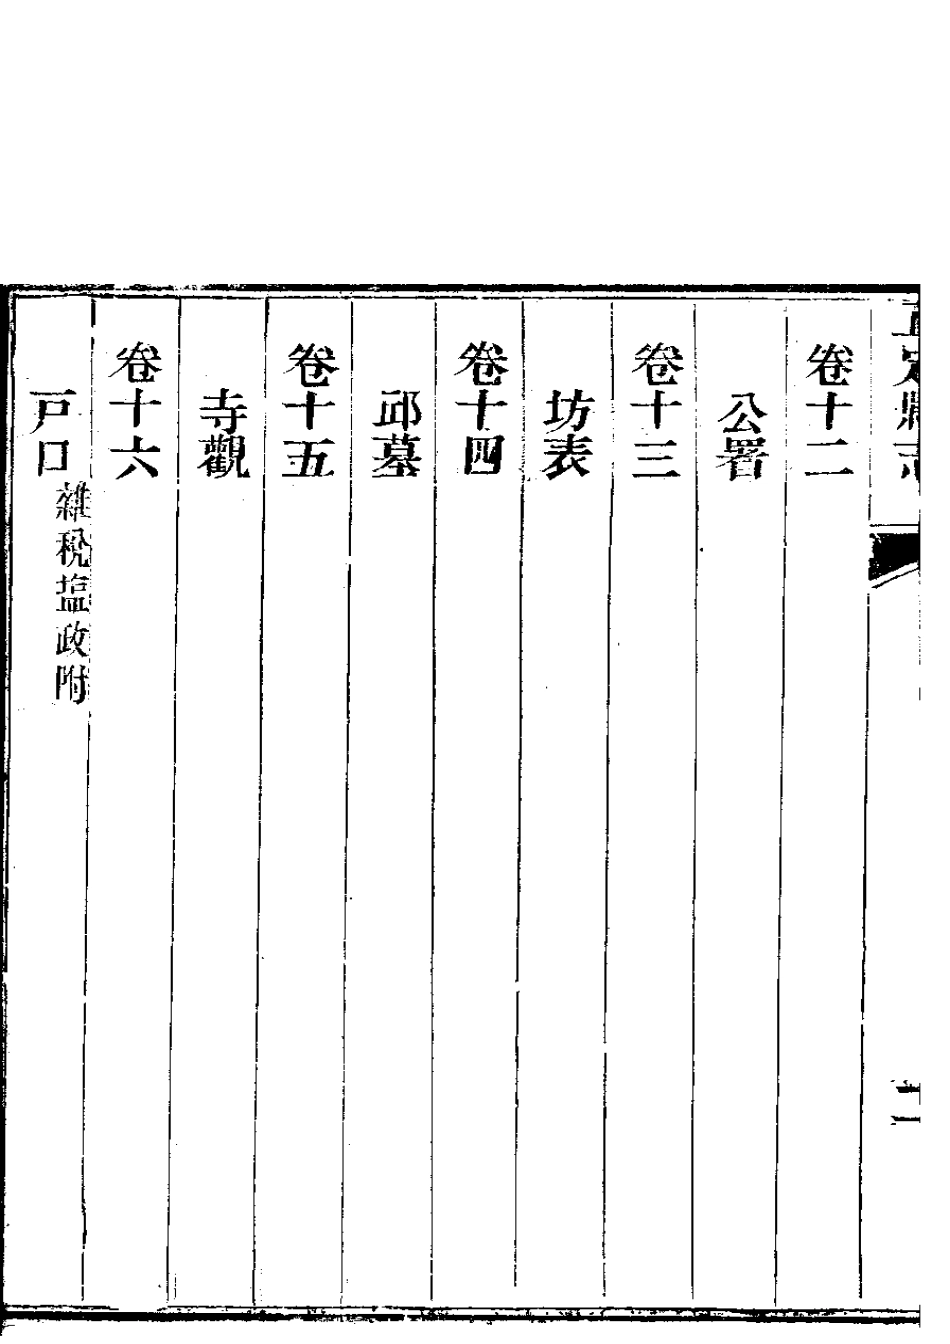 卷十二
公署
卷十三
坊表
卷十四
邱墓
卷十五
寺觀
卷十六
戸口雜稅塩政附